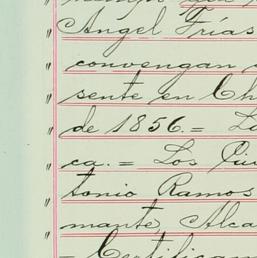 " Angel Frías
" convengan
" sente en Ch
" de 1856.= La
" ca.= Los Ciu
" tonio Ramos
" mante, Alca
" = Certificam